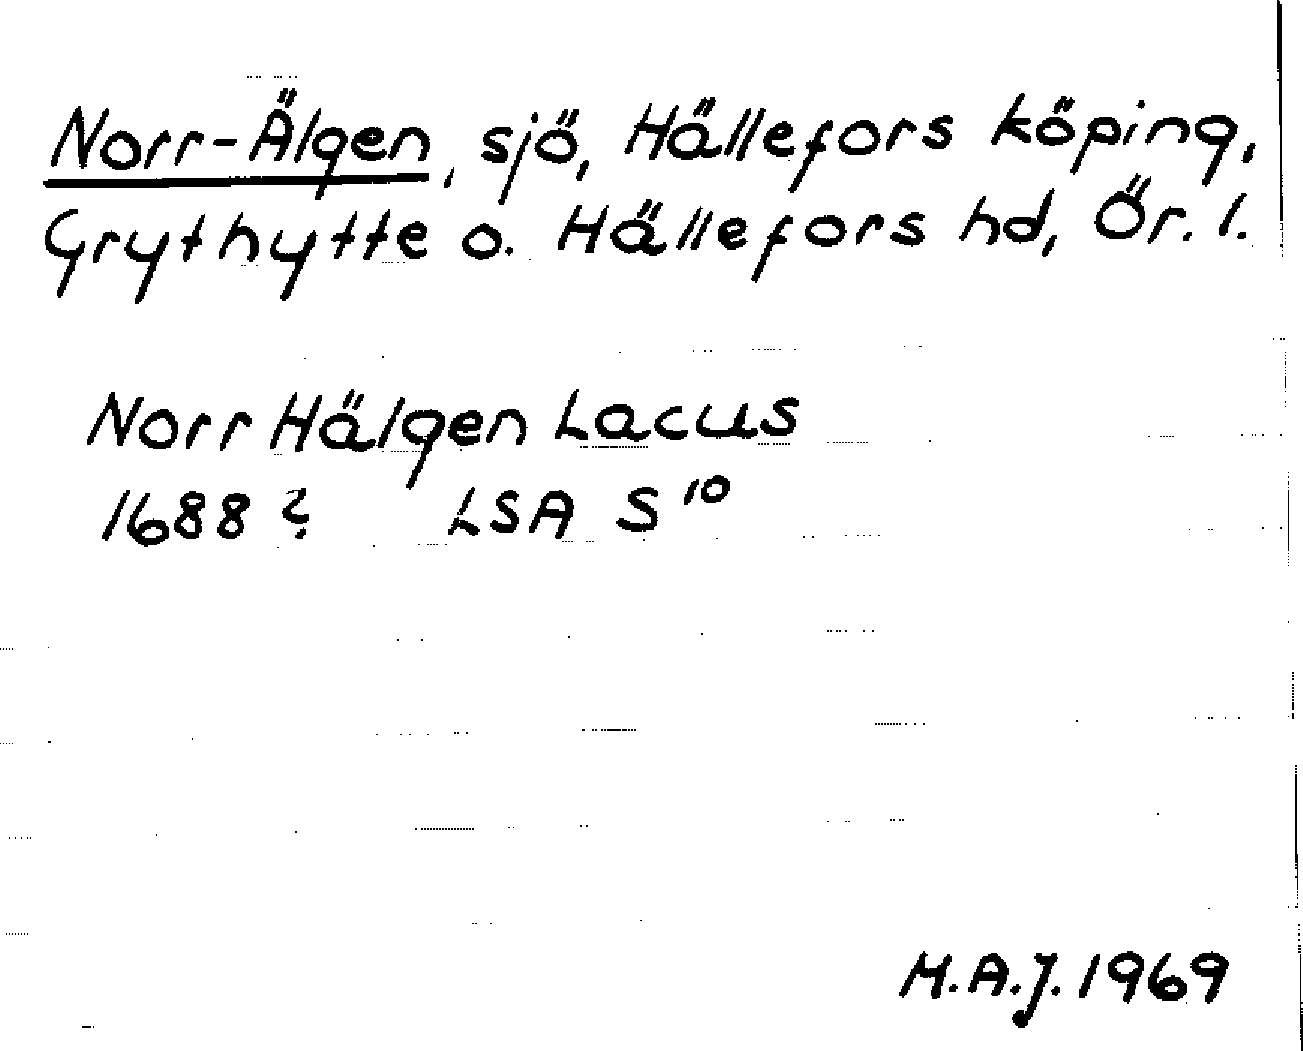 Norr-Älgen, sjö, Hällefors köping,
Grythytte o. Hällefors hd, Ör. l.
Norr Hälgen Lacus
1688? LSA S 10
M.A.J. 1969